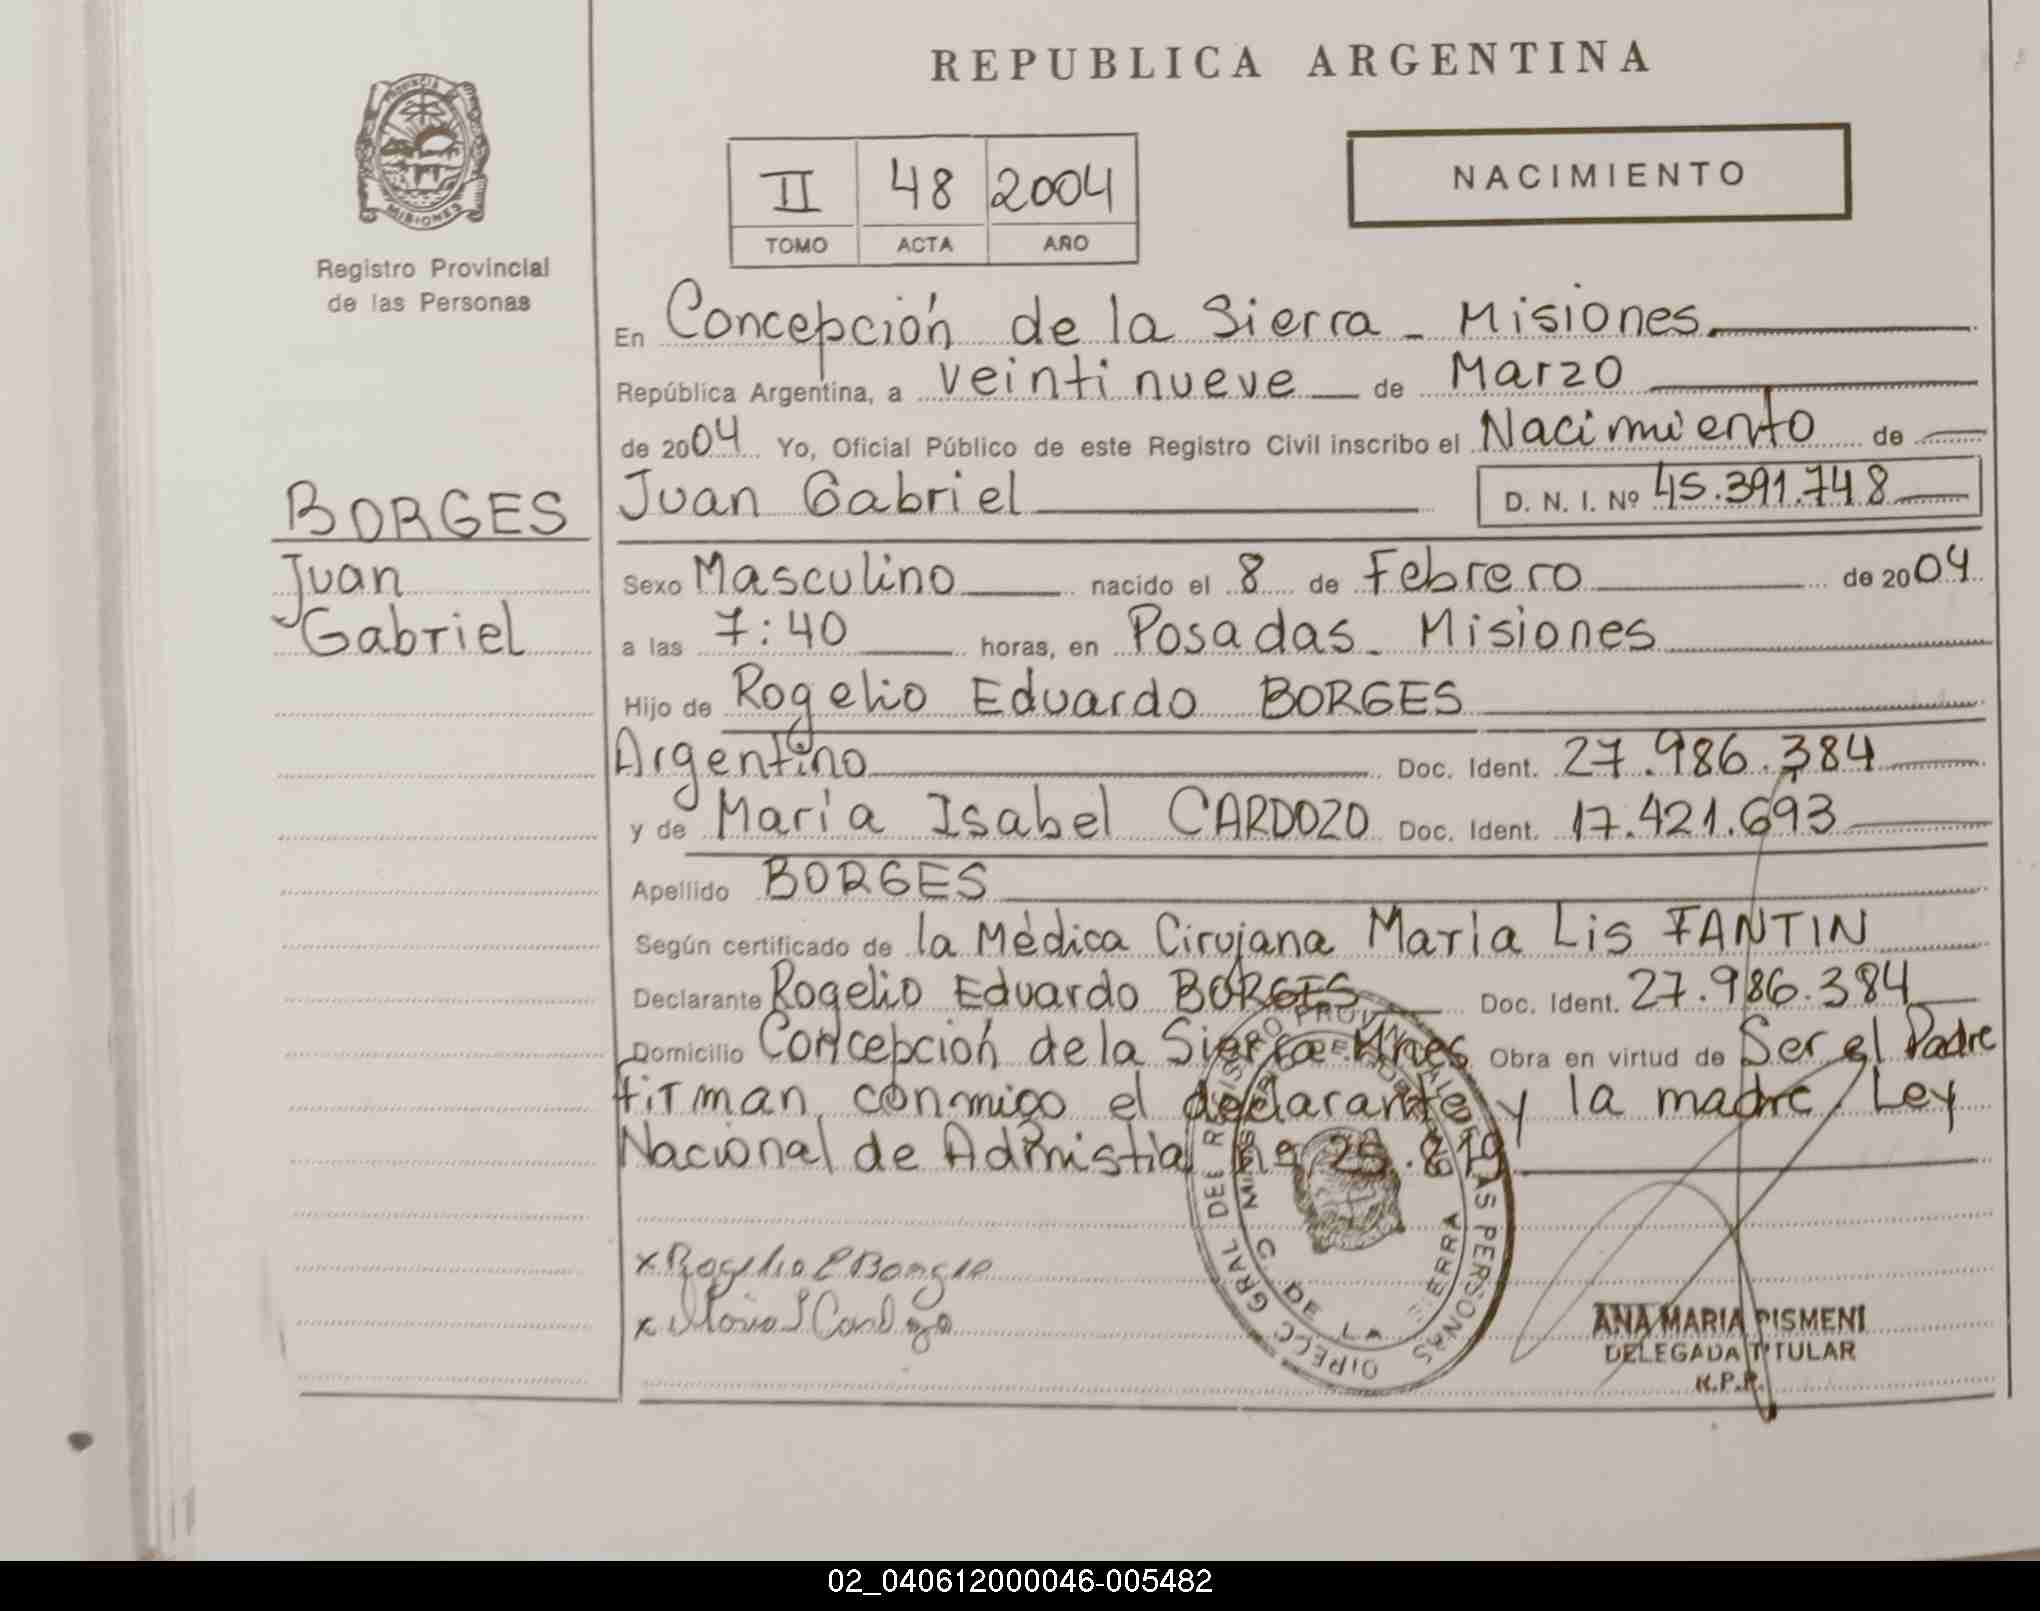 REPUBLICA ARGENTINA
PROVINCIA DE
MISIONES
Registro Provincial
de las Personas
II 48 2004
TOMO ACTA AÑO
NACIMIENTO
En Concepción de la Sierra - Misiones.
República Argentina, a veintinueve de Marzo
de 2004 Yo, Oficial Público de este Registro Civil inscribo el Nacimiento de
BORGES
Juan
Gabriel
Juan Gabriel D. N. I. Nº 45.391.748
Sexo Masculino nacido el 8 de Febrero de 2004
a las 7:40 horas, en Posadas - Misiones
Hijo de Rogelio Eduardo BORGES
Argentino Doc. Ident. 27.986.384
y de María Isabel CARDOZO Doc. Ident. 17.421.693
Apellido BORGES
Según certificado de la Médica Cirujana María Lis FANTIN
Declarante Rogelio Eduardo BORGES Doc. Ident. 27.986.384
Domicilio Concepción de la Sierra Mnes Obra en virtud de Ser el Padre
firman conmigo el declarante y la madre. Ley
Nacional de Admistia nº 25.819
x Rogelio E Borges
x Maria I Cardozo
DIRECC GRAL DEL REGISTRO PROVINCIAL DE LAS PERSONAS
C. DE LA SIERRA
ANA MARIA PISMENI
DELEGADA TITULAR
R.P.P.
02_040612000046-005482